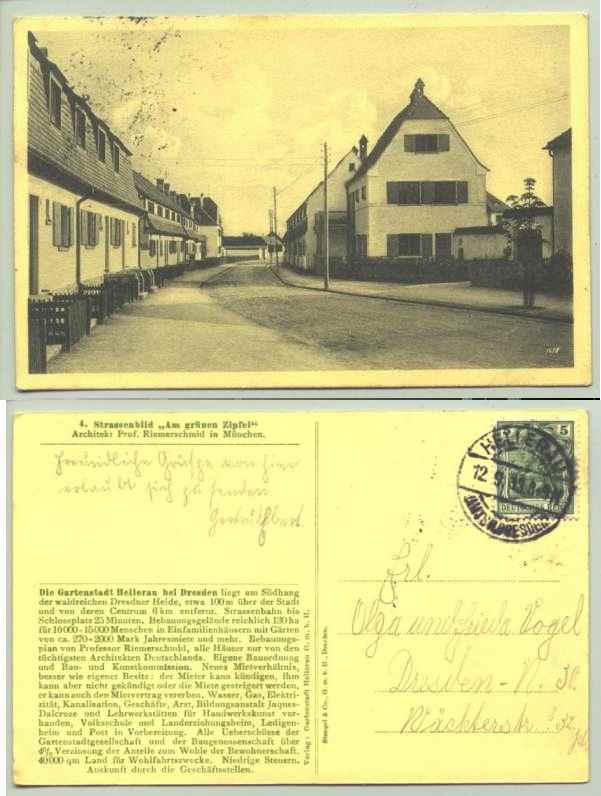 4. Strassenbild „Am grünen Zipfel“
Architekt Prof. Riemerschmid in München.
Freundliche Grüsse von hier
erlaubt sich zu senden
Die Gartenstadt Hellerau bei Dresden liegt am Südhang
der waldreichen Dresdner Heide, etwa 100 m über der Stadt
und von deren Centrum 6 km entfernt. Strassenbahn bis
Schlossplatz 25 Minuten. Bebauungsgelände reichlich 130 ha
für 10000-15000 Menschen in Einfamilienhäusern mit Gärten
von ca. 270-2000 Mark Jahresmiete und mehr. Bebauungs-
plan von Professor Riemerschmid, alle Häuser nur von den
tüchtigsten Architekten Deutschlands. Eigene Bauordnung
und Bau- und Kunstkommission. Neues Mietverhältnis,
besser wie eigener Besitz: der Mieter kann kündigen, ihm
kann aber nicht gekündigt oder die Miete gesteigert werden,
er kann auch den Mietvertrag vererben. Wasser, Gas, Elektri-
zität, Kanalisation, Geschäfte, Arzt, Bildungsanstalt Jaques-
Dalcroze und Lehrwerkstätten für Handwerkskunst vor-
handen, Volksschule und Landerziehungsheim, Ledigen-
heim und Post in Vorbereitung. Alle Ueberschüsse der
Gartenstadtgesellschaft und der Baugenossenschaft über
4% Verzinsung der Anteile zum Wohle der Bewohnerschaft.
40000 qm Land für Wohlfahrtszwecke. Niedrige Steuern.
Auskunft durch die Geschäftsstellen.
Verlag: Gartenstadt Hellerau G. m. b. H.
Stengel & Co., G. m. b. H., Dresden.
HELLERAU
12.
5
DEUTSCHES REICH
Frl.
Olga und Frieda Vogel
Dresden-N. 30.
Wächterstr. 37.